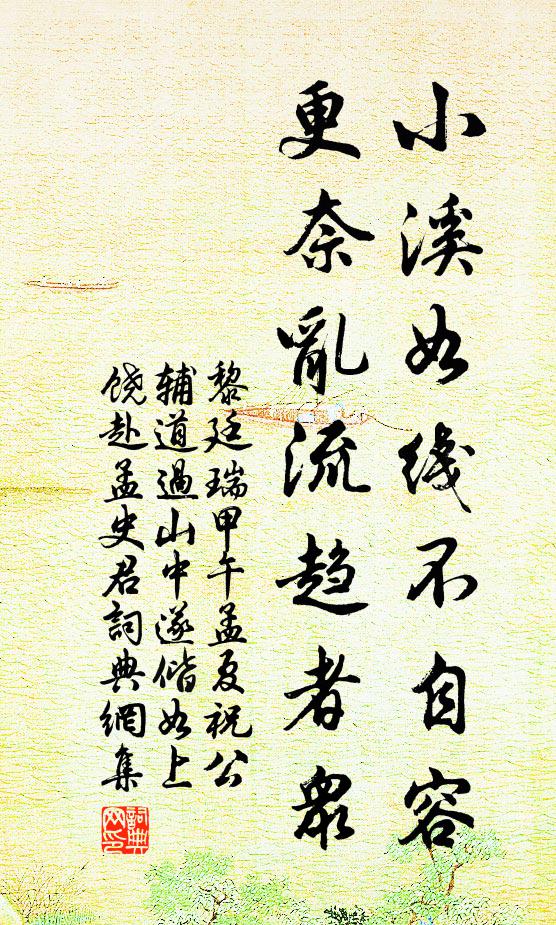 小溪如线不自容
更奈亂流趋者眾
黎廷瑞甲午孟夏祝公
辅道過山中遂偕如上
饶赴孟史君詞典網集
詞典网印